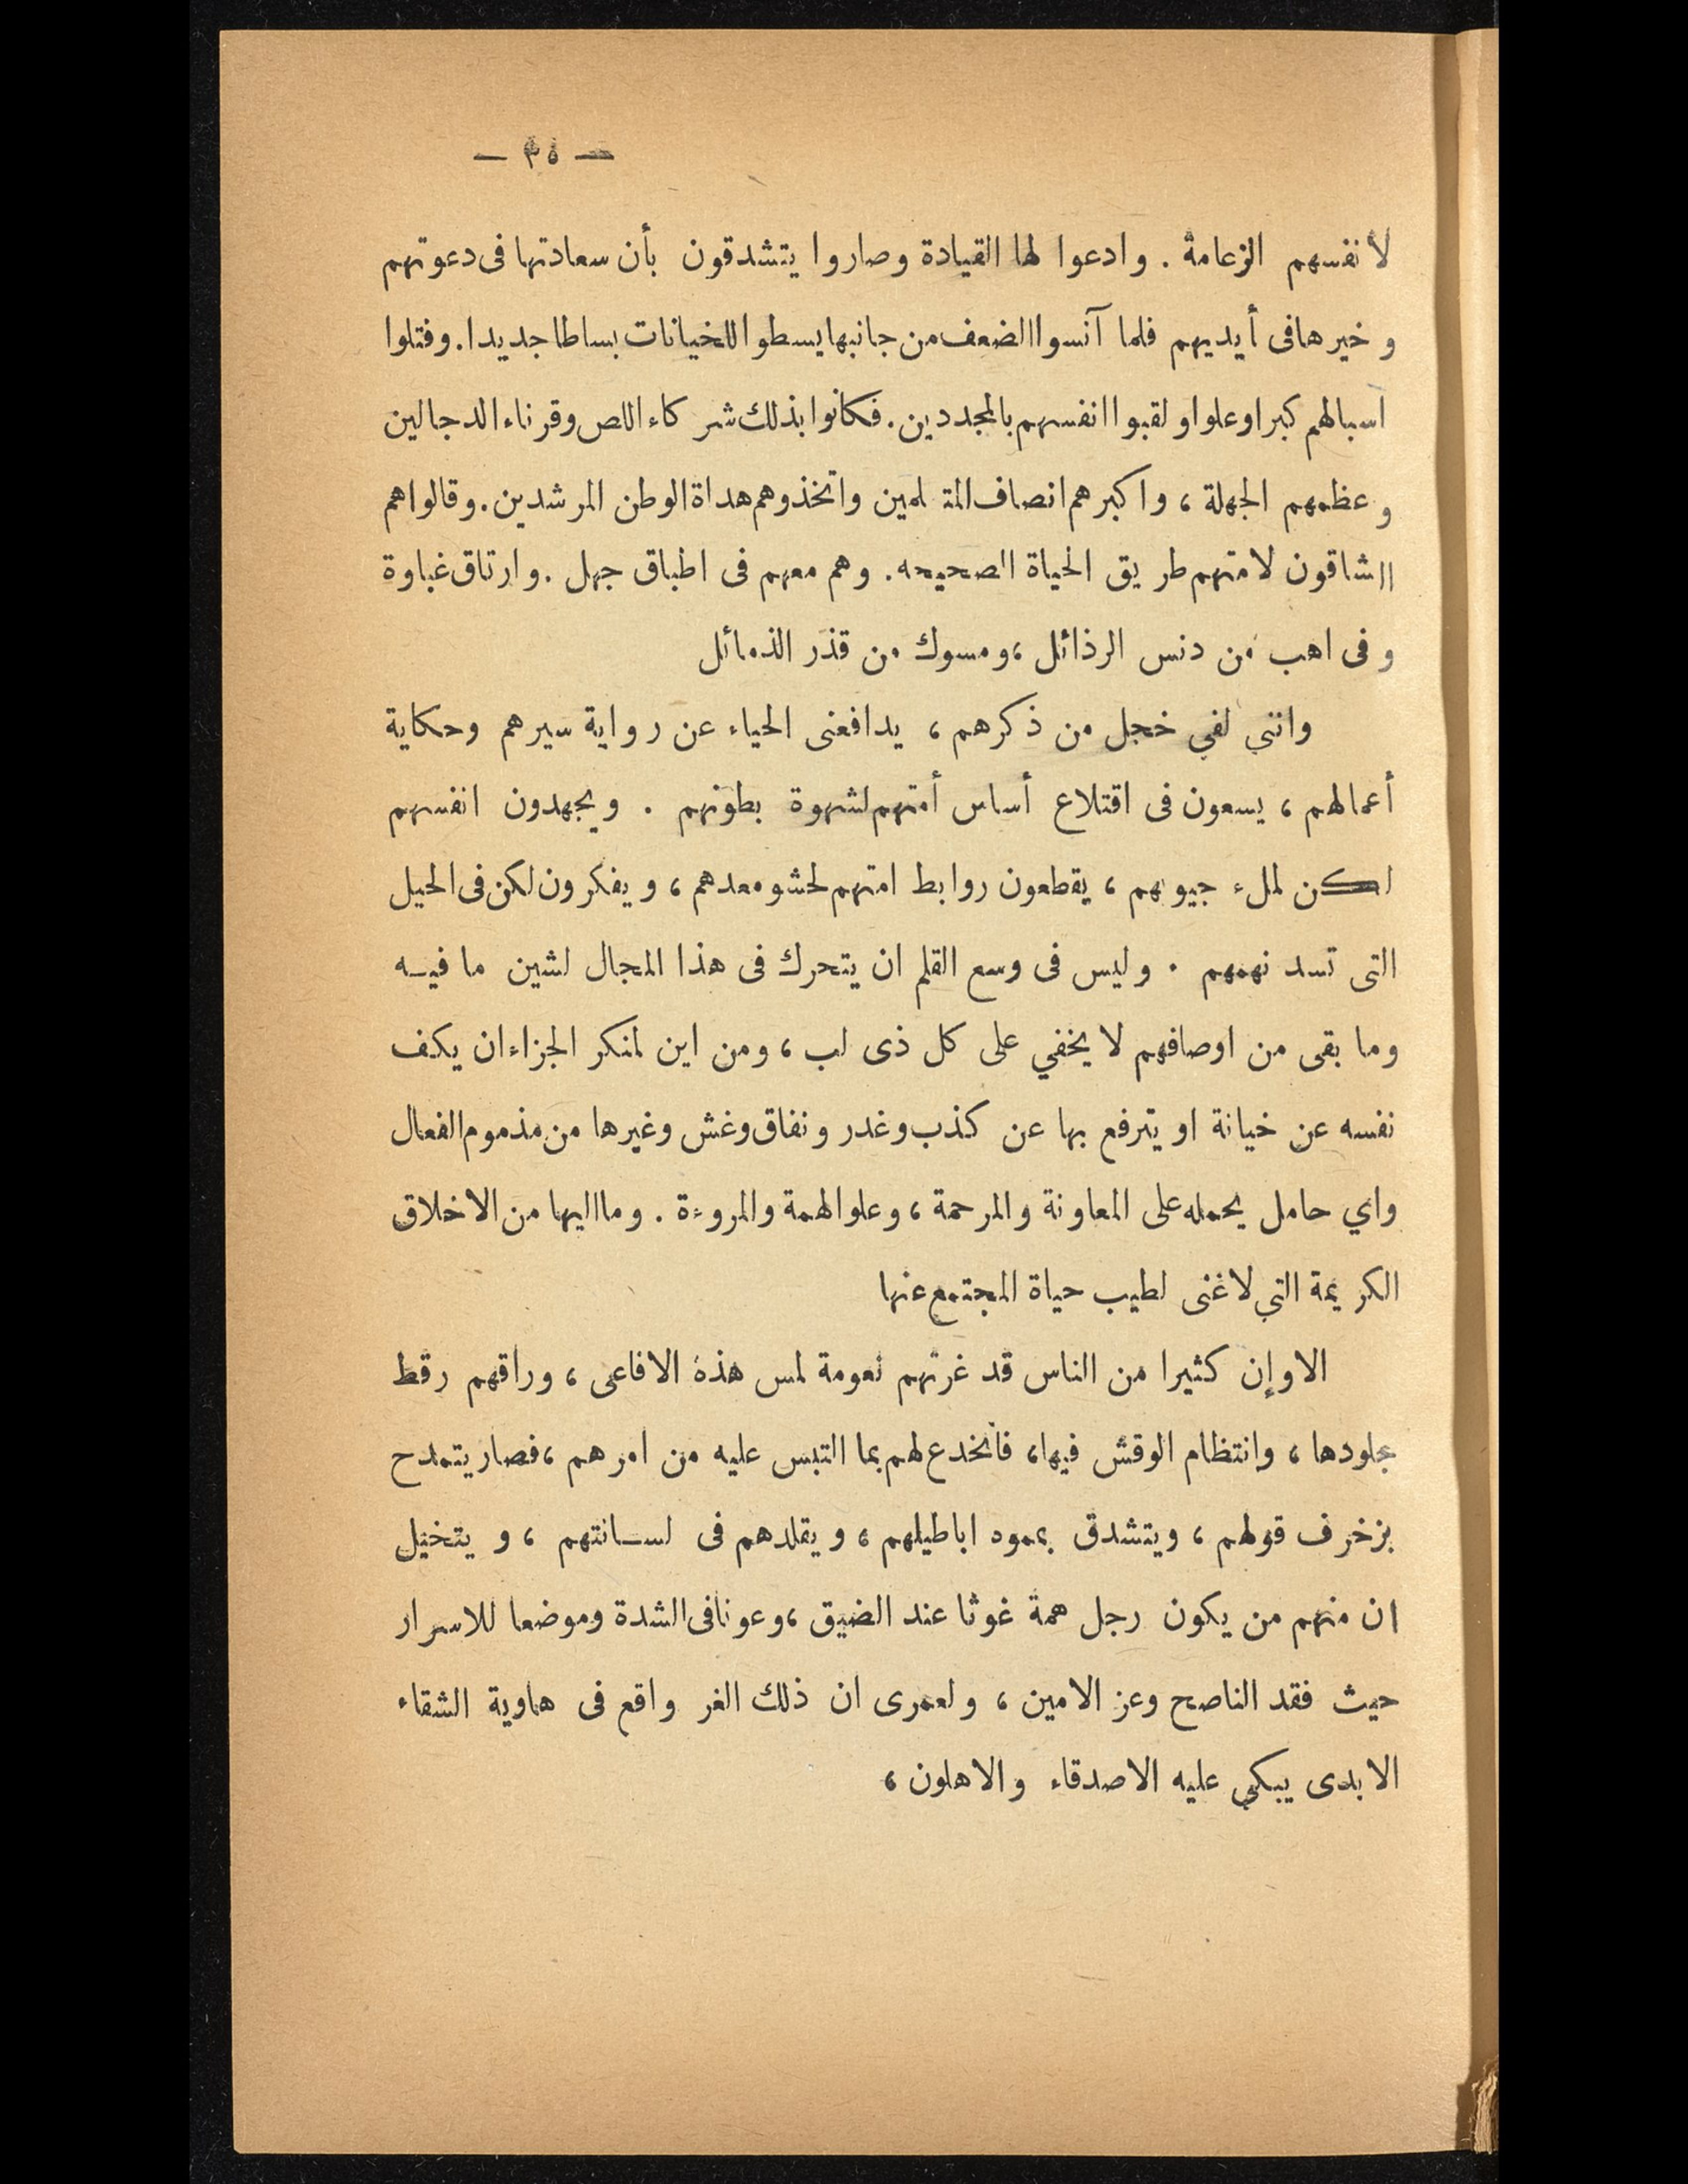 — ٣٥ —
لأنفسهم الزعامة . وادعوا لها القيادة وصاروا يتشدقون بأن سعادتها فى دعوتهم
وخيرها فى أيديهم فلما آنسوا الضعف من جانبها يسطوا للخيانات بساطا جديدا . وفتلوا
اسبالهم كبرا وعلوا ولقبوا انفسهم بالمجددين . فكانوا بذلك شركاء اللص وقرناء الدجالين
وعظمهم الجهلة ، واكبرهم انصاف المتـ لمين واتخذوهم هداة الوطن المرشدين . وقالوا هم
الشاقون لامتهم طريق الحياة الصحيحه . وهم معهم فى اطباق جهل . وارتاق غباوة
وفى اهب من دنس الرذائل ، ومسوك من قذر الذمائل
وانني لفي خجل من ذكرهم ، يدافعنى الحياء عن رواية سيرهم وحكاية
أعمالهم ، يسعون فى اقتلاع أساس أمتهم لشهوة بطونهم . ويجهدون انفسهم
لكن لملء جيوبهم ، يقطعون روابط امتهم لحشو معدهم ، ويفكرون لكن فى الحيل
التى تسد نهمهم . وليس فى وسع القلم ان يتحرك فى هذا المجال لشين ما فيـه
وما بقى من اوصافهم لا يخفي على كل ذى لب ، ومن اين لمنكر الجزاء ان يكف
نفسه عن خيانة او يترفع بها عن كذب وغدر ونفاق وغش وغيرها من مذموم الفعال
واي حامل يحمله على المعاونة والمرحمة ، وعلو الهمة والمروءة . وما اليها من الاخلاق
الكريمة التي لا غنى لطيب حياة المجتمع عنها
الا وإن كثيرا من الناس قد غرتهم نعومة لمس هذه الافاعى ، وراقهم رقط
جلودها ، وانتظام الوقش فيها ، فانخدع لهم بما التبس عليه من امرهم ، فصار يتمدح
بزخرف قولهم ، ويتشدق بمموه اباطيلهم ، ويقلدهم فى لسـانتهم ، و يتخيل
ان منهم من يكون رجل همة غوثا عند الضيق ، وعونا فى الشدة وموضعا للاسرار
حيث فقد الناصح وعز الامين ، ولعمرى ان ذلك الغر واقع فى هاوية الشقاء
الابدى يبكي عليه الاصدقاء والاهلون ،